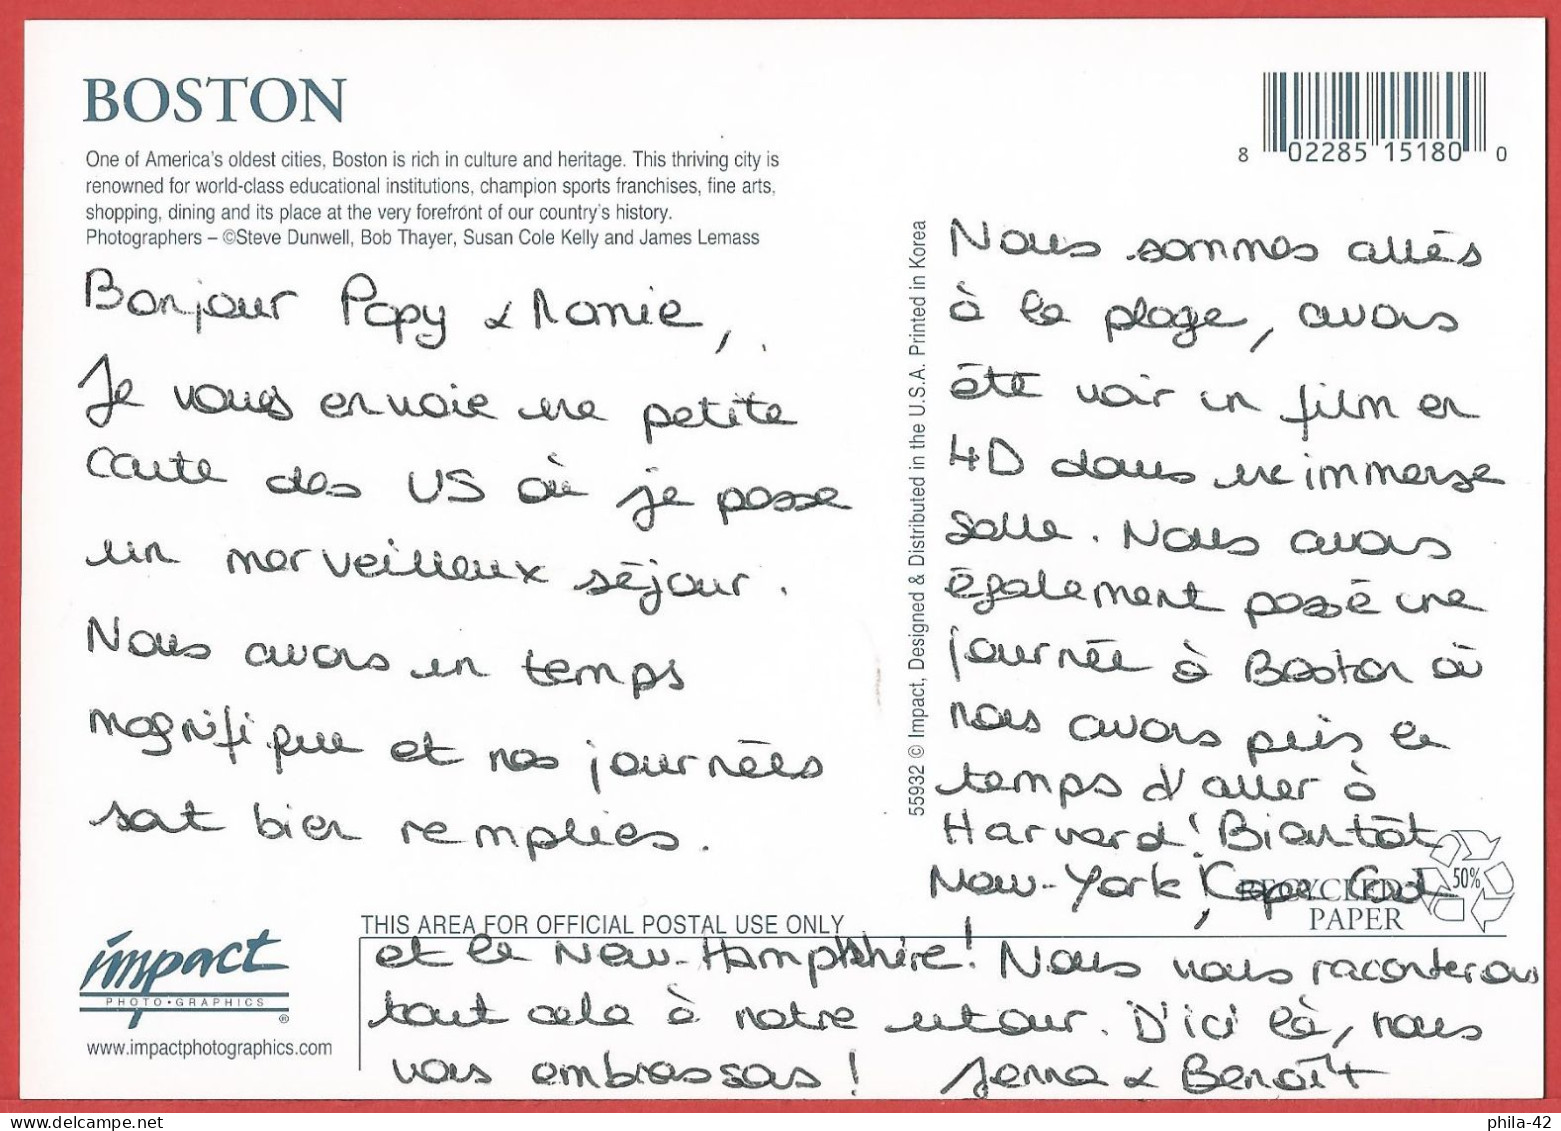 BOSTON
8 02285 15180 0
One of America's oldest cities, Boston is rich in culture and heritage. This thriving city is
renowned for world-class educational institutions, champion sports franchises, fine arts,
shopping, dining and its place at the very forefront of our country's history.
Photographers – ©Steve Dunwell, Bob Thayer, Susan Cole Kelly and James Lemass
Bonjour Papy & Mamie,
Je vous envoie une petite
carte des US où je passe
un merveilleux séjour.
Nous avons un temps
magnifique et nos journées
sont bien remplies.
55932 © Impact, Designed & Distributed in the U.S.A. Printed in Korea
Nous sommes allés
à la plage, avons
été voir un film en
4D dans une immense
salle. Nous avons
également passé une
journée à Boston où
nous avons pris le
temps d'aller à
Harvard! Bientôt
New-York, Cape Cod
et le New-Hampshire! Nous vous raconterons
tout cela à notre retour. D'ici là, nous
vous embrassons! Jenna & Benoît
50%
RECYCLED
PAPER
THIS AREA FOR OFFICIAL POSTAL USE ONLY
impact
PHOTO•GRAPHICS
®
www.impactphotographics.com
phila-42